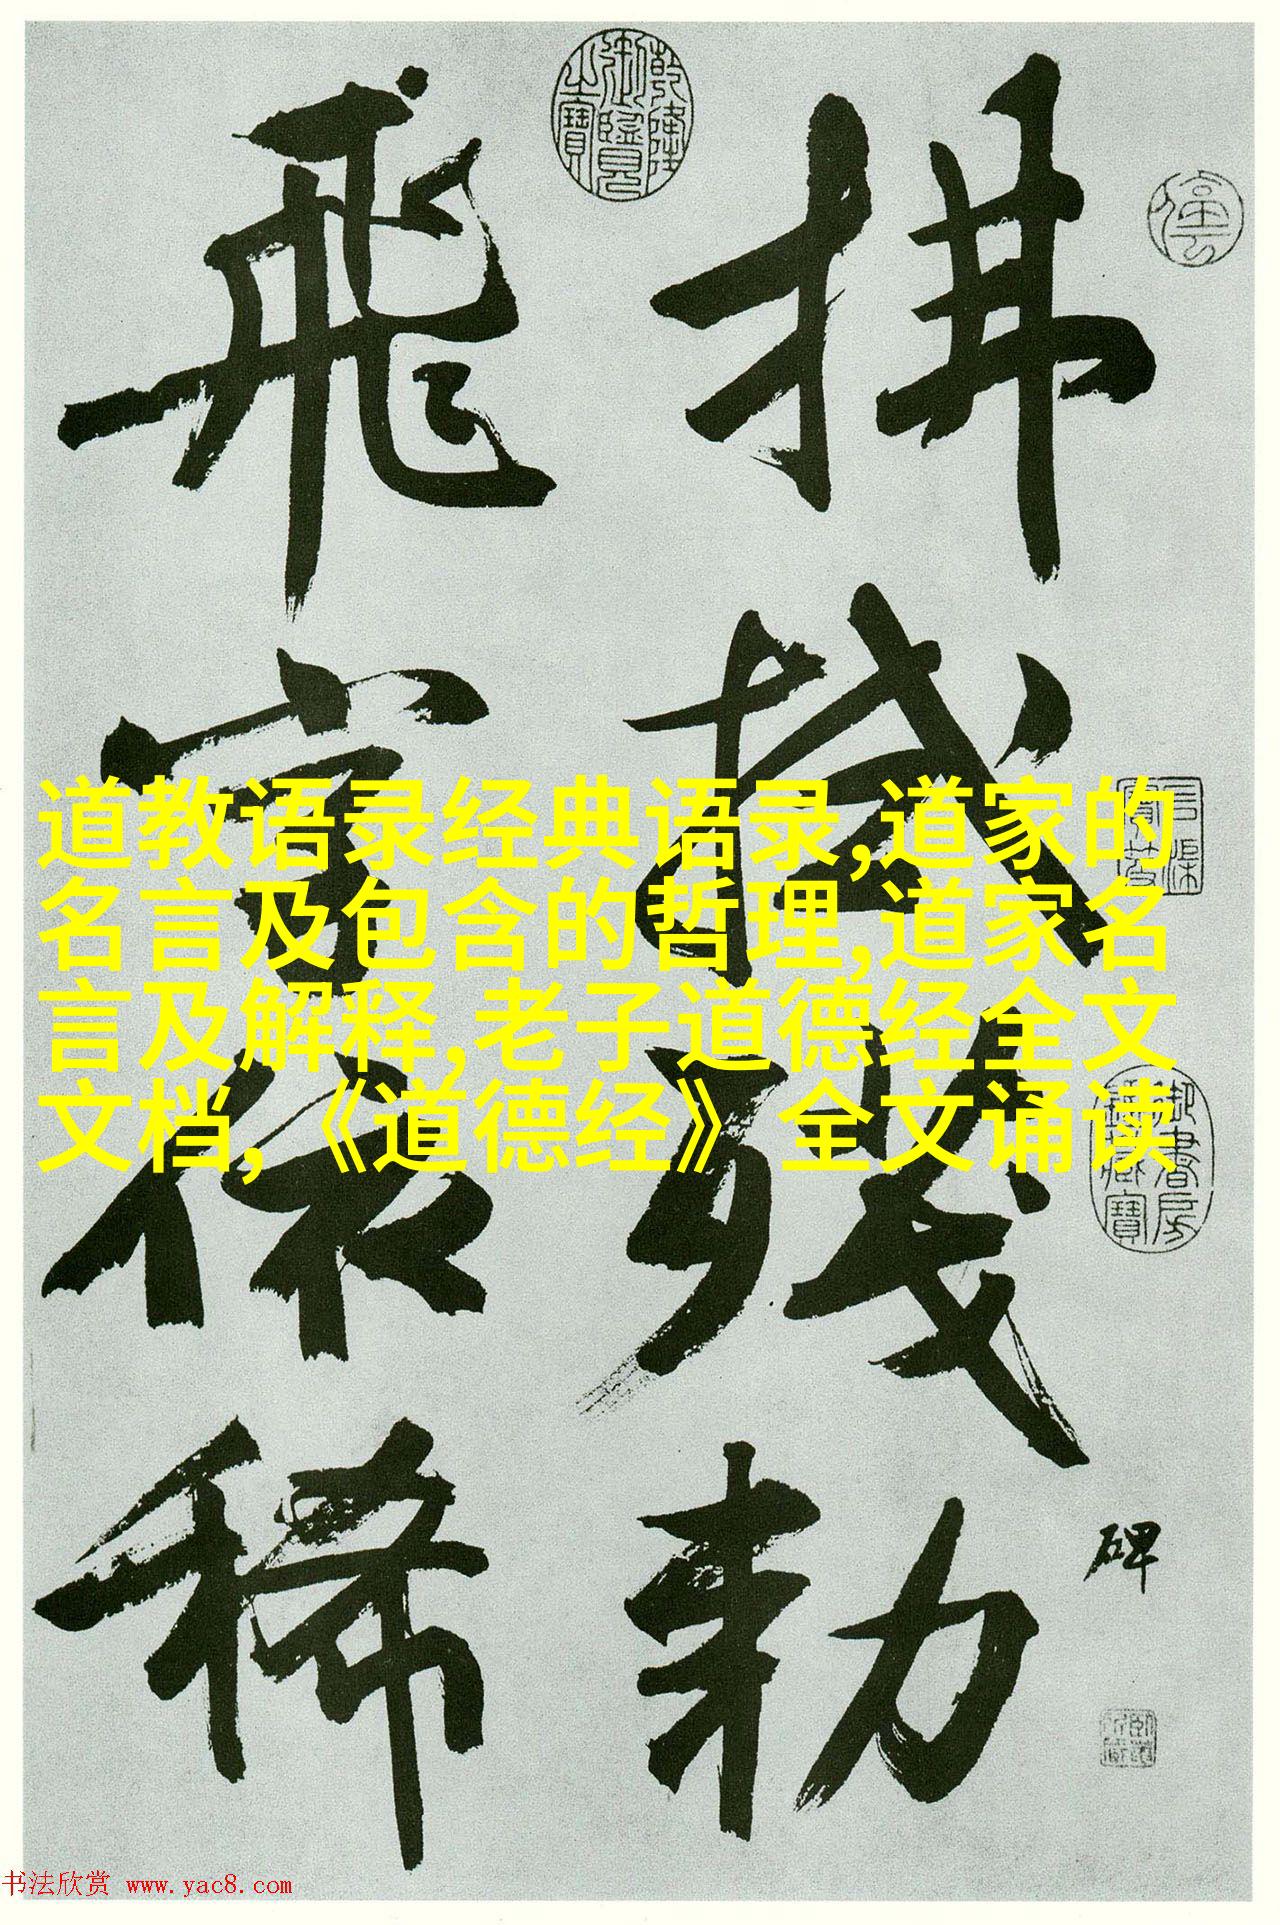 拂拭残
勑
碑
飛字依稀
乾隆御覽之寶
道教语录经典语录,道家的
名言及包含的哲理,道家名
言及解释,老子道德经全文
文档,《道德经》全文诵读
书法欣赏 www.yac8.com